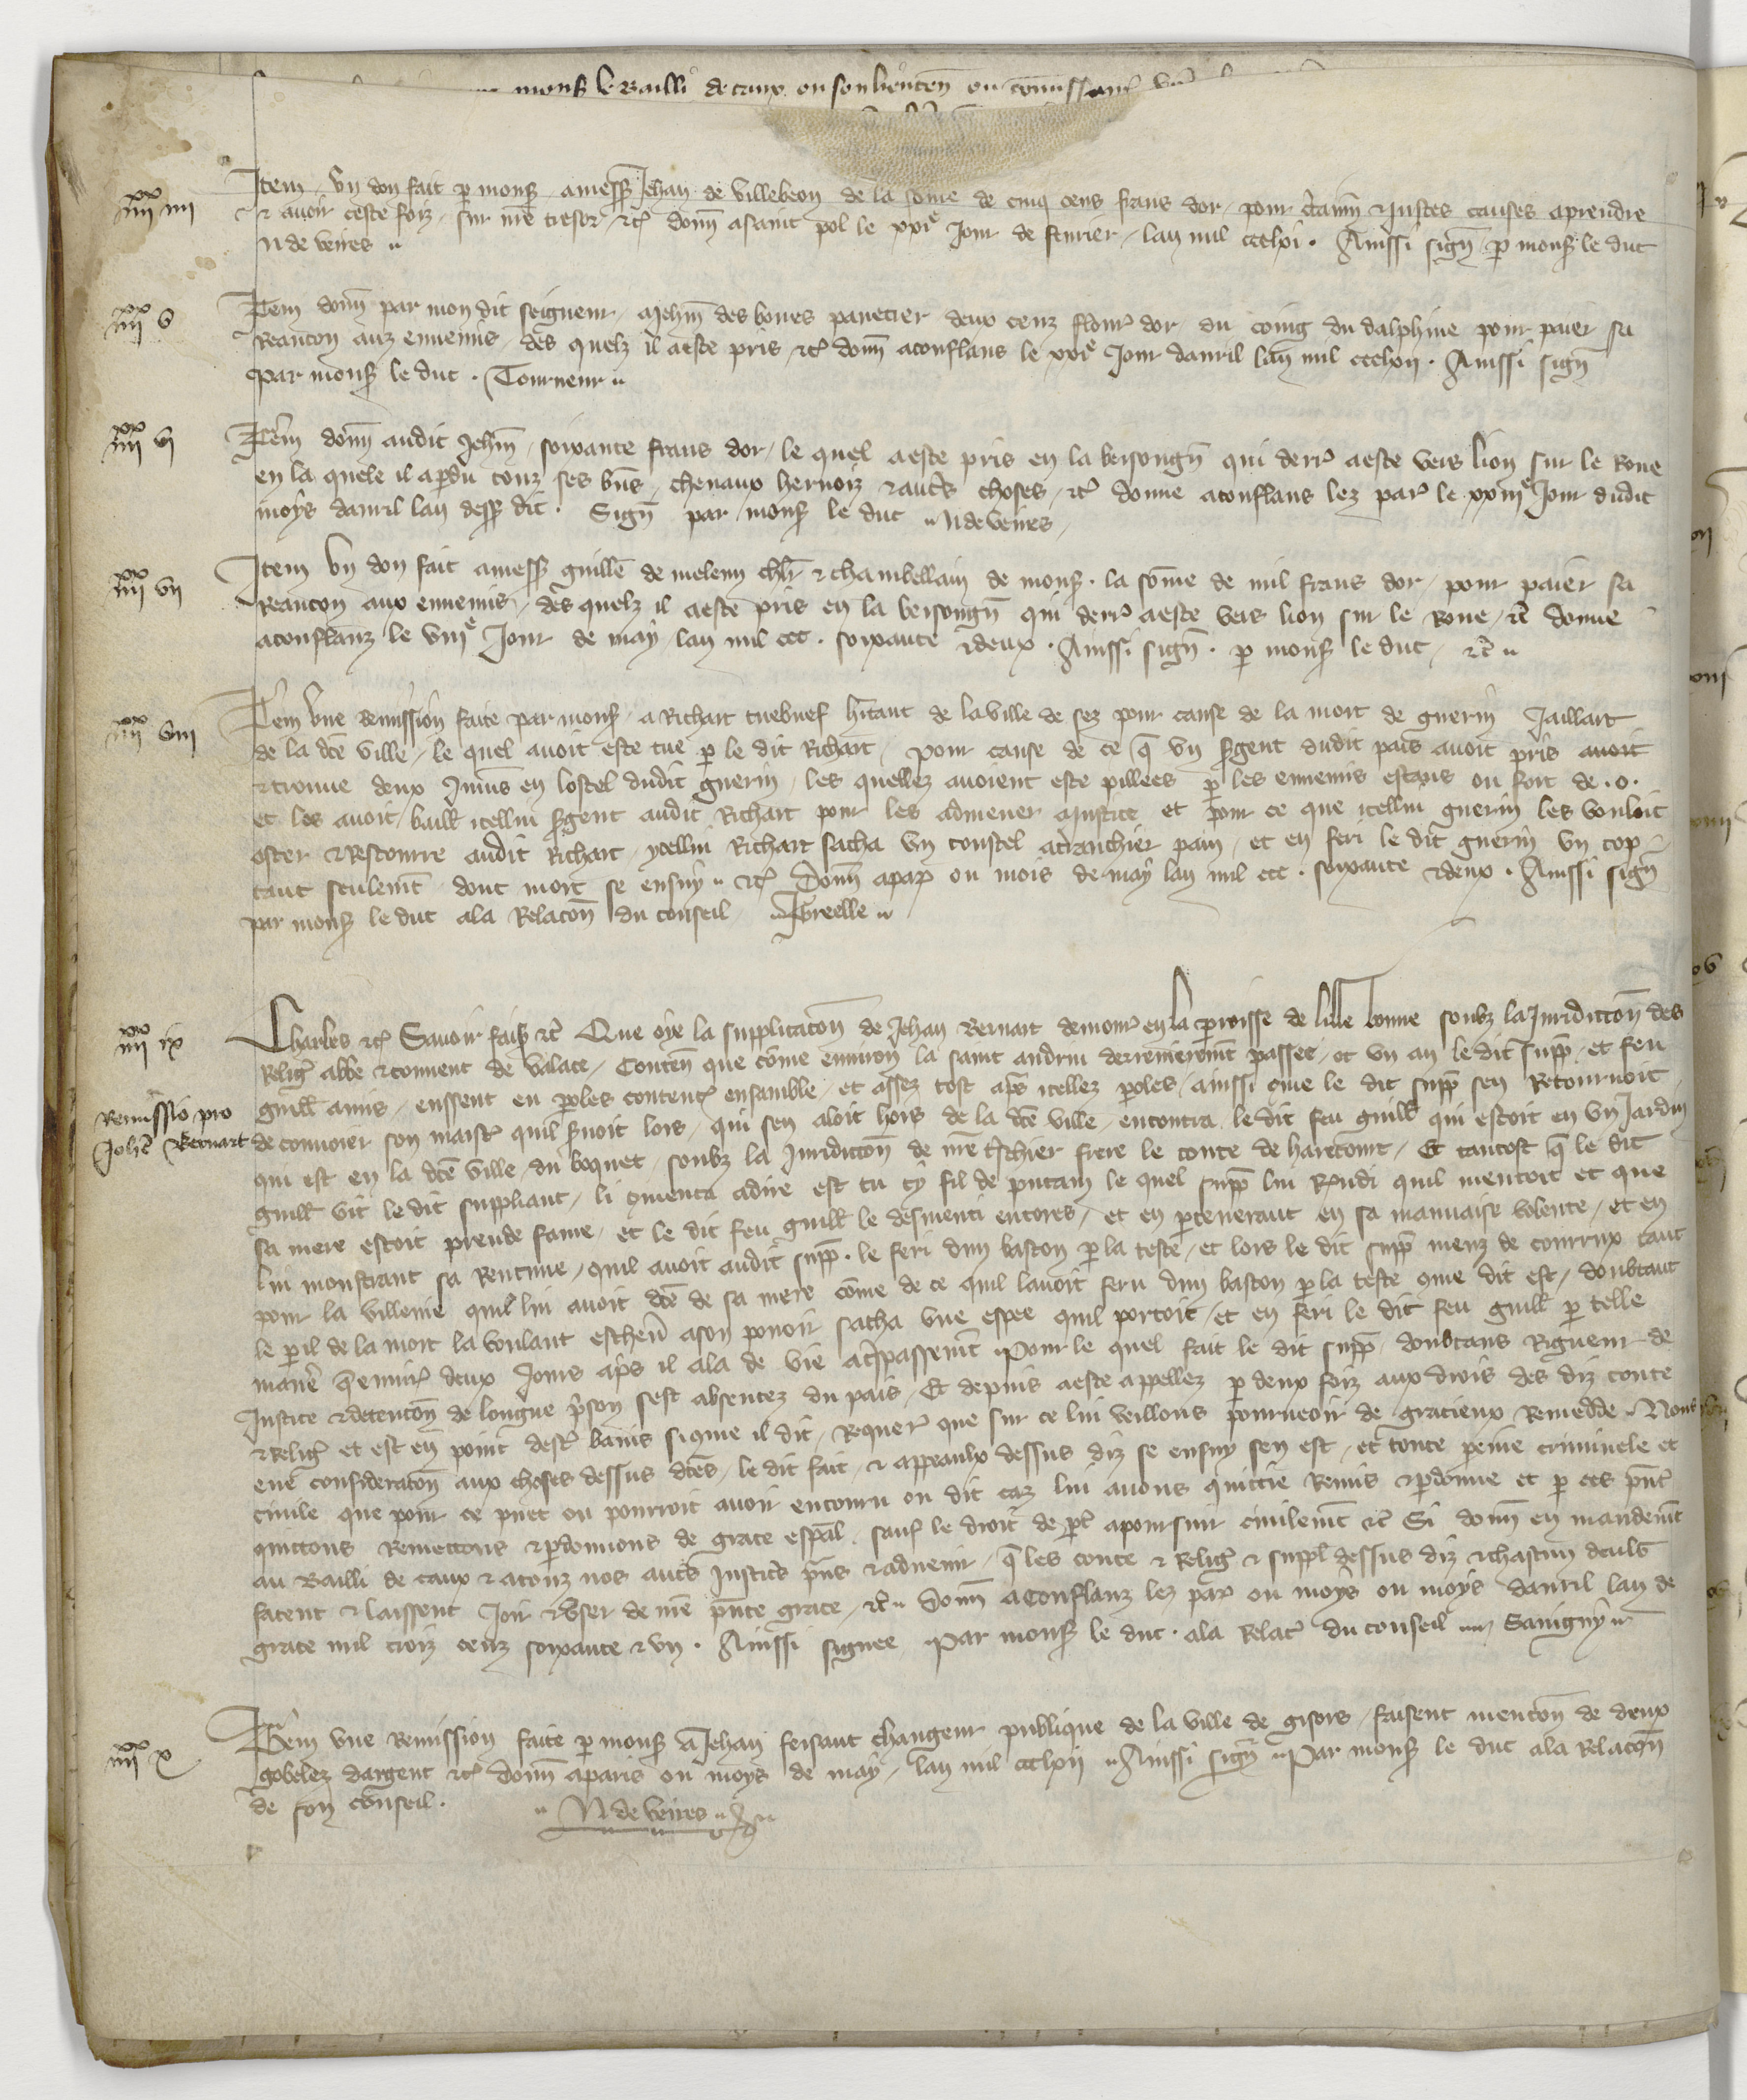 monss le Bailli de caux ou son lieuten ou commissair
iiii xx iiii
Item un don fait p monss a mess Jehan de Villebeon de la some de cinq cens frans dor pour ctain & justes causes a prendre
& avoir ceste foiz sur nre tresor etc donn a saint pol le xxie jour de fevrier lan mil ccclxi. Ainssi sign p monss le duc
N de veires
iiii xx v
Item donn par mon dit seigneur a Jehan des boves panetier deux cenz flour dor du coing du dalphine pour paier sa
Reancon auz ennemis des quelz il a este pris etc donn a conflans le xxie jour davril lan mil ccclxii. Ainssi sign
par monss le duc. Tourneur
iiii xx vi
Item donn audit Jehan soixante frans dor le quel a este pris en la besongn qui derr a este vers lion sur le Rone
en la quele il a pdu touz ses bns chevaux hernoiz & autrs choses etc donne a conflans lez par le xxiiie jour dudit
moys davril lan dess dit. Sign par monss le duc N de veires
iiii xx vii
Item un don fait a mess guille de meleun chlr & chambellain de monss. la some de mil frans dor pour paier sa
Reancon aux ennemis des quelz il a este pris en la besongn qui derr a este vers lion sur le Rone etc donne
a conflanz le viiie jour de may lan mil ccc. soixante & deux. Ainssi sign. p monss le duc etc
iiii xx viii
Item une remission faite par monss a Richart tuebuef hitant de la ville de sez pour cause de la mort de guerin Jaillart
de la dce ville le quel avoit este tue p le dit Richart pour cause de ce q un sgent dudit pais avoit pris avoit
& trouve deux jumens en lostel dudit guerin les quellez avoient este pillees p les ennemis estans ou fort de .o.
et les avoit baill icellui sgent audit Richart pour les admener a justice et pour ce que icellui guerin les vouloit
oster & Rescourre audit Richart ycellui Richart sacha un coustel a tranchier pain et en feri le dit guerin un cop
tant seulemt dont mort se ensuy etc Donn a par ou mois de may lan mil ccc. soixante & deux. Ainssi sign
par monss le duc a la Relacon du conseil Greelle
iiii xx ix
Remissio pro
Johe Revnart
Charles etc Savoir fais etc Que oye la supplicacon de Jehan Revnart demour en la proisse de lille bonne soubz la juridiccon des
Relig abbe & couvent de valace Conten que come environ la saint andrieu derreinement passee et un an le dit supp et feu
guill amis eussent eu poles contenc ensamble et assez tost aps icellez poles ainssi que le dit supp sen Retournoit
de convoier son maistr quil svoit lors qui sen aloit hors de la dce ville encontra le dit feu guill qui estoit en un jardin
qui est en la dce ville du boquet soubz la juridiccon de nre tschier frere le conte de harecourt Et tantost q le dit
guill vit le dit suppliant li omenca a dire est tu cy fil de putain le quel supp lui Rendi quil mentoit et que
sa mere estoit preude fame et le dit feu guill le desmenti encores et en pseverant en sa mauvaise volente et en
lui monstrant sa Rencune quil avoit audit supp. le feri dun baston p la teste et lors le dit supp meuz de courrux tant
pour la villenie quil lui avoit dce de sa mere come de ce quil lavoit feru dun baston p la teste ome dit est doubtant
le pil de la mort la voulant eschev a son povoir sacha une espee quil portoit et en feri le dit feu guill p telle
manie q envir deux jours aps il ala de vie a trspassemt Pour le quel fait le dit supp doubtans Rigueur de
justice & detencon de longue pson sest absentez du pais Et depuis a este appellez p deux foiz aux drois des diz conte
& Relig et est en point destr banis si ome il dit Requer que sur ce lui veillons pourveoir de gracieux Remedde Nous
eue consideracon aux choses dessus dces le dit fait & appeaulx dessus diz se ensuy sen est et toute peine criminele et
civile que pour ce puet ou pourroit avoir encouru ou dit caz lui avons quictie Remis & pdonne et p ces pnt
quictons Remettons & pdonnons de grace espal sauf le droit de pt a poursuir civilemt etc Si donn en mandemt
au Bailli de caux & a touz nos autrs justics pns & advenir q les conte & Relig & suppl dessus diz & chascun deulx
facent & laissent joir & user de nre pnte grace etc Donn a Conflanz lez par ou moys ou moys davril lan de
grace mil troiz cenz soixante & un. Ainssi signee Par monss le duc. a la Relac du conseil Savigny
iiii xx x
Item une Remission faite p monss a Jehan feisant changeur publique de la ville de gisors faisent mencon de deux
gobelez dargent etc donn a paris ou moys de may lan mil ccclxii Ainssi sign Par monss le duc a la Relacon
de son conseil.
N de veires